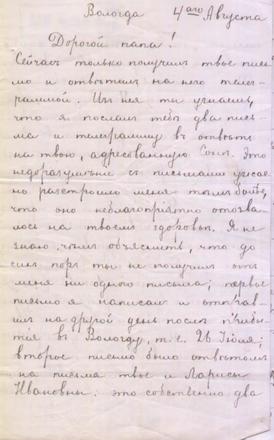 Вологда 4го Августа
Дорогой папа!
Сейчас только получилъ твое пись
мо и отвѣтилъ на него теле-
граммой. Изъ нея ты узнаешь,
что я послалъ тебѣ два пись
ма и телеграмму въ отвѣтъ
на твою, адресованную Сонѣ. Это
недоразумѣніе съ письмами ужасно
разстроило меня тѣмъ болѣе,
что оно неблагопріятно отозва
лось на твоемъ здоровьи. Я не
знаю, чѣмъ объяснить, что до
сихъ поръ ты не получилъ отъ
меня ни одного письма; первое
письмо я написалъ и отправ
илъ на другой день послѣ прибы
тія въ Вологду, т. е. 26 Іюля;
второе письмо было отвѣтомъ
на письма твое и Ларисы
Ивановны. Это собственно два